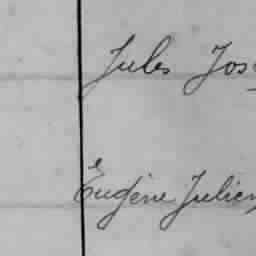 Jules Jos
Eugène Julien